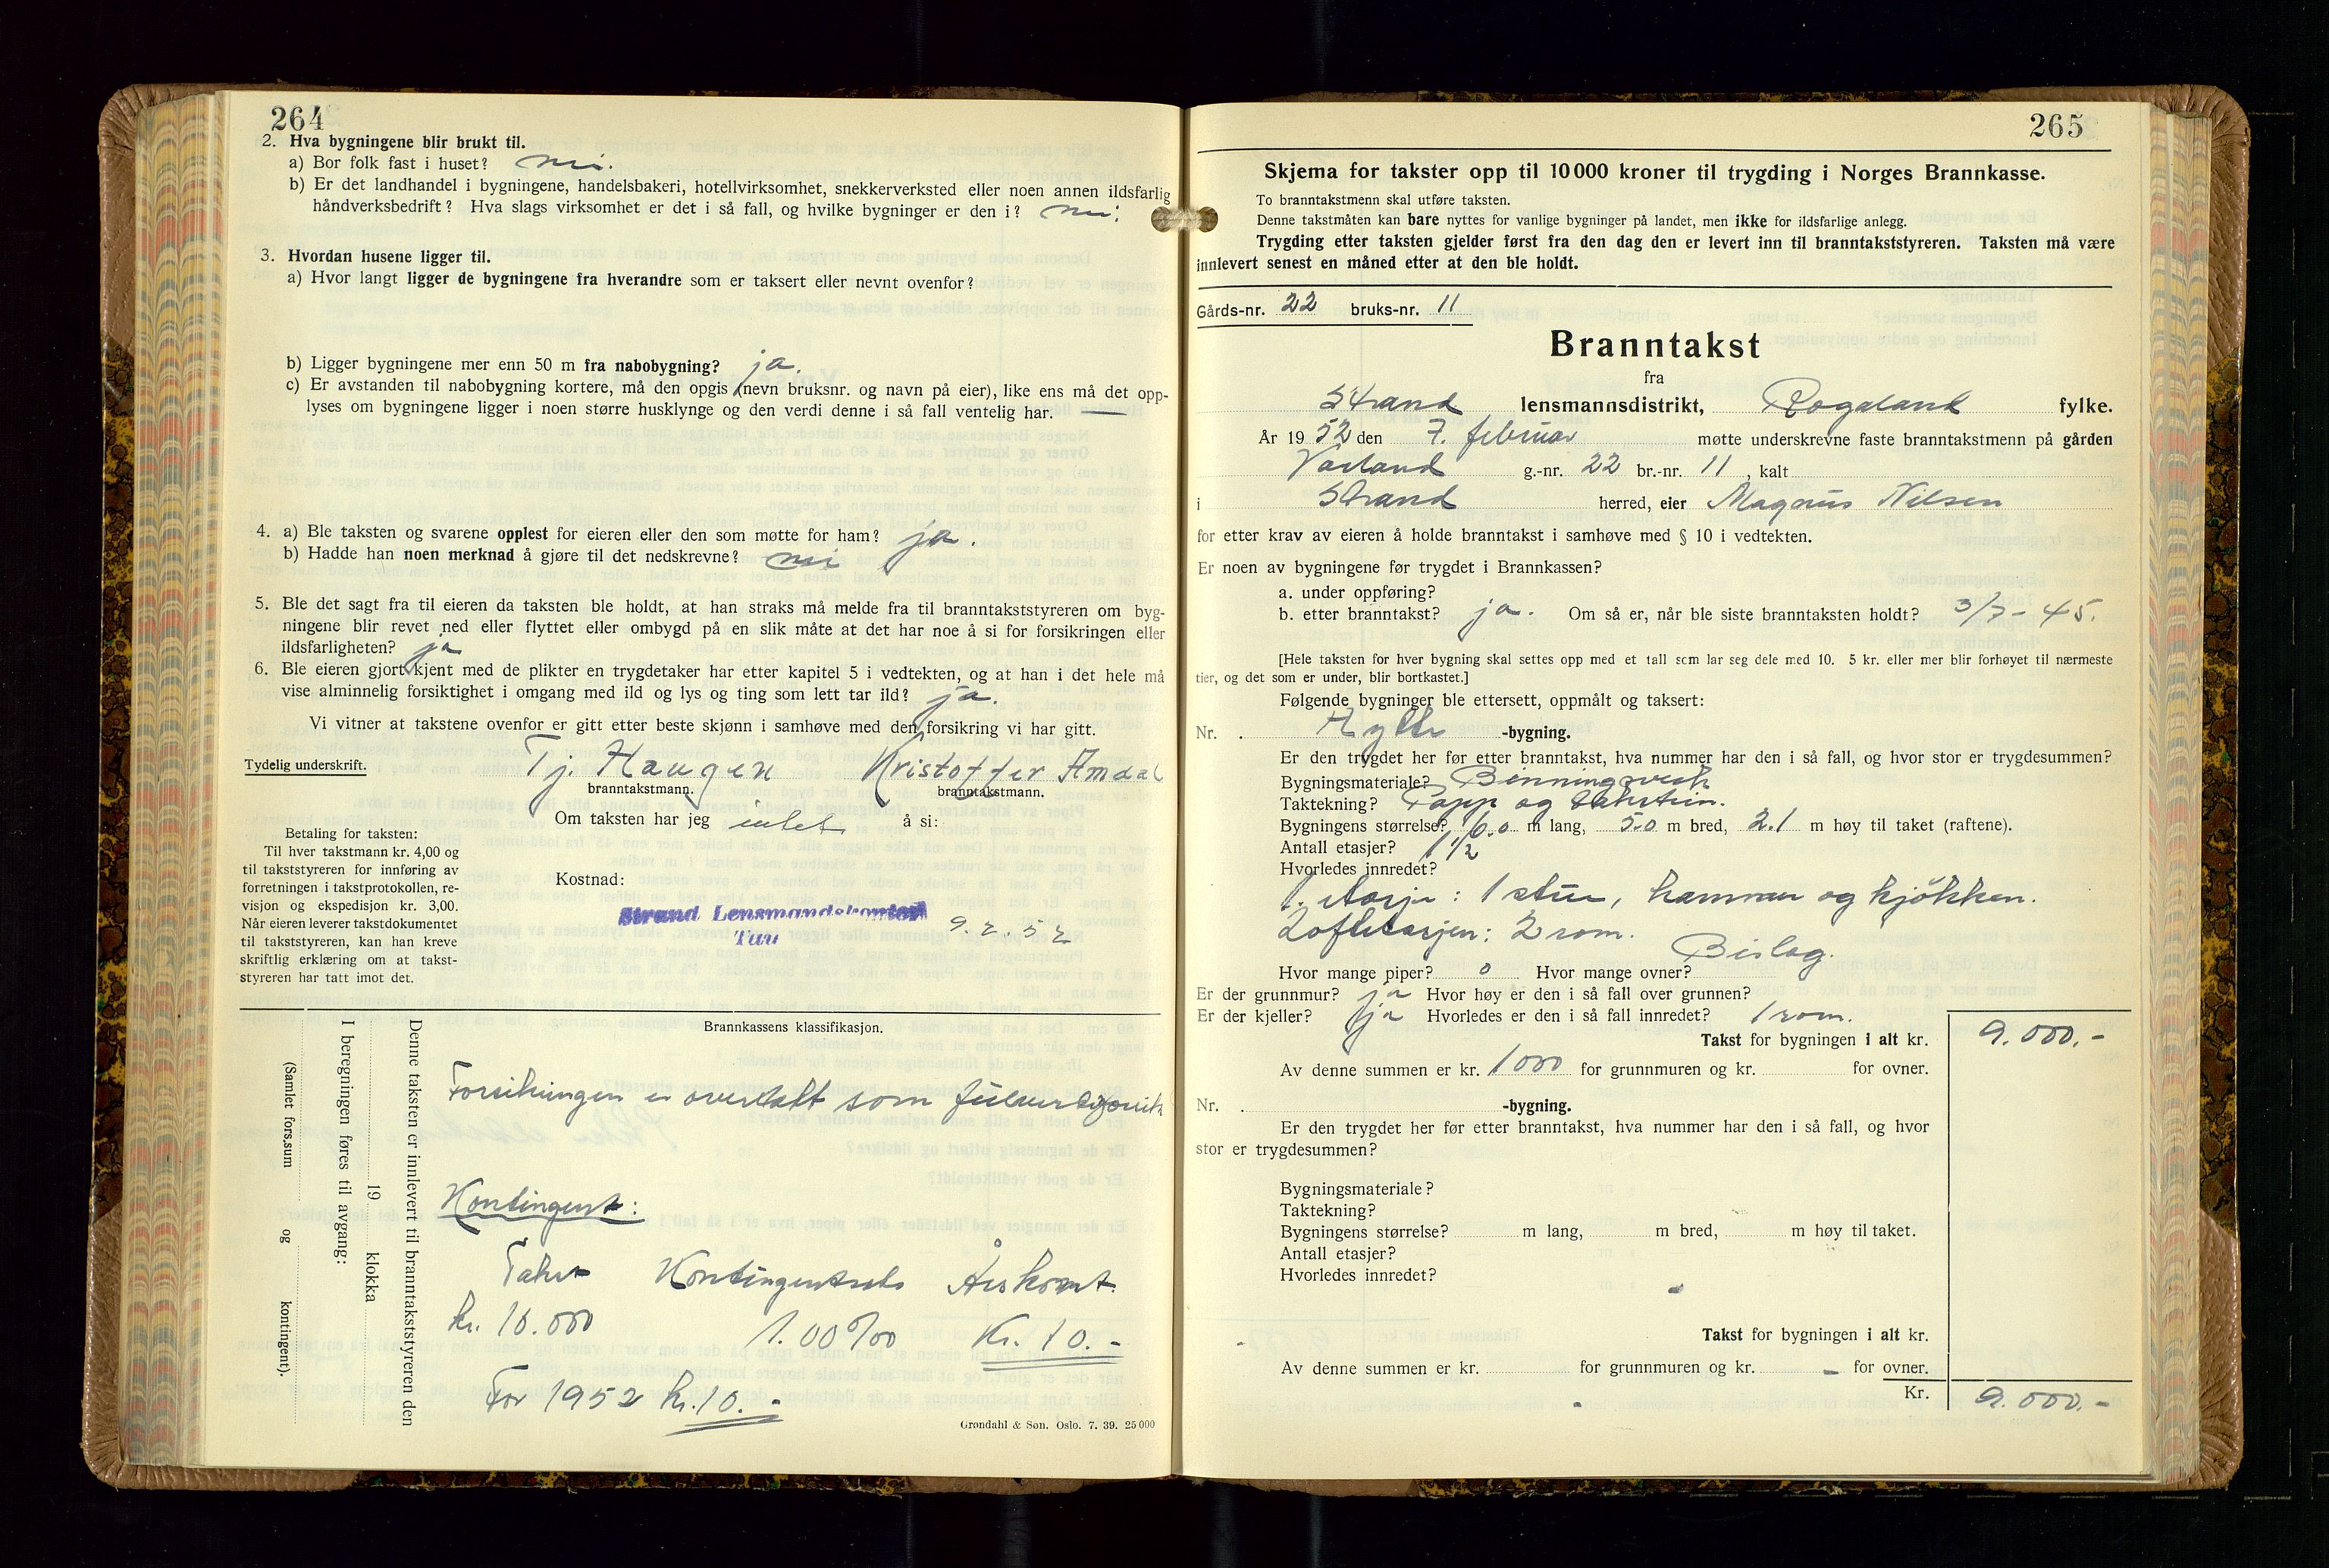 264
2. Hva bygningene blir brukt til.
a) Bor folk fast i huset? nei.
b) Er det landhandel i bygningene, handelsbakeri, hotellvirksomhet, snekkerverksted eller noen annen ildsfarlig
håndverksbedrift? Hva slags virksomhet er det i så fall, og hvilke bygninger er den i? nei.
3. Hvordan husene ligger til.
a) Hvor langt ligger de bygningene fra hverandre som er taksert eller nevnt ovenfor?
b) Ligger bygningene mer enn 50 m fra nabobygning? ja.
c) Er avstanden til nabobygning kortere, må den opgis (nevn bruksnr. og navn på eier), like ens må det opp-
lyses om bygningene ligger i noen større husklynge og den verdi denne i så fall ventelig har. —
4. a) Ble taksten og svarene opplest for eieren eller den som møtte for ham? ja.
b) Hadde han noen merknad å gjøre til det nedskrevne? nei
5. Ble det sagt fra til eieren da taksten ble holdt, at han straks må melde fra til branntakststyreren om byg-
ningene blir revet ned eller flyttet eller ombygd på en slik måte at det har noe å si for forsikringen eller
ildsfarligheten? ja
6. Ble eieren gjort kjent med de plikter en trygdetaker har etter kapitel 5 i vedtekten, og at han i det hele må
vise alminnelig forsiktighet i omgang med ild og lys og ting som lett tar ild? ja.
Vi vitner at takstene ovenfor er gitt etter beste skjønn i samhøve med den forsikring vi har gitt.
Tydelig underskrift. Tj. Haugen Kristoffer Amdal
branntakstmann. branntakstmann.
Om taksten har jeg intet å si:
Betaling for taksten:
Til hver takstmann kr. 4,00 og
til takststyreren for innføring av
forretningen i takstprotokollen, re-
visjon og ekspedisjon kr. 3,00.
Når eieren leverer takstdokumentet
til takststyreren, kan han kreve
skriftlig erklæring om at takst-
styreren har tatt imot det.
Kostnad:
Strand Lensmandskontor
Tau
9.2.52
Denne taksten er innlevert til branntakststyreren den
19 klokka
I beregningen føres til avgang:
(Samlet fors.sum og kontingent).
Brannkassens klassifikasjon.
Forsikringen er overtatt som
Kontingent:
Takst Kontingentsats Årskont.
kr. 10.000 1.00 ‰ Kr. 10.-
For 1952 kr. 10.-
Grøndahl & Søn. Oslo. 7. 39. 25 000
265
Skjema for takster opp til 10 000 kroner til trygding i Norges Brannkasse.
To branntakstmenn skal utføre taksten.
Denne takstmåten kan bare nyttes for vanlige bygninger på landet, men ikke for ildsfarlige anlegg.
Trygding etter taksten gjelder først fra den dag den er levert inn til branntakststyreren. Taksten må være
innlevert senest en måned etter at den ble holdt.
Gårds-nr. 22 bruks-nr. 11
Branntakst
fra
Strand lensmannsdistrikt, Rogaland fylke.
År 1952 den 7. februar møtte underskrevne faste branntakstmenn på gården
Vårland g.-nr. 22 br.-nr. 11, kalt
i Strand herred, eier Magnus Nilsen
for etter krav av eieren å holde branntakst i samhøve med § 10 i vedtekten.
Er noen av bygningene før trygdet i Brannkassen?
a. under oppføring?
b. etter branntakst? ja. Om så er, når ble siste branntaksten holdt? 3/7-45.
[Hele taksten for hver bygning skal settes opp med et tall som lar seg dele med 10. 5 kr. eller mer blir forhøyet til nærmeste
tier, og det som er under, blir bortkastet.]
Følgende bygninger ble ettersett, oppmålt og taksert:
Nr. . Hytte -bygning.
Er den trygdet her før etter branntakst, hva nummer har den i så fall, og hvor stor er trygdesummen?
Bygningsmateriale? Binningsverk
Taktekning? Papp og takstein.
Bygningens størrelse? 6.0 m lang, 5.0 m bred, 2.1 m høy til taket (raftene).
Antall etasjer? 1 1/2
Hvorledes innredet?
1. etasje: 1 stue, kammer og kjøkken.
Loftetasjen: 2 rom. Bislag.
Hvor mange piper? 0 Hvor mange ovner?
Er der grunnmur? ja Hvor høy er den i så fall over grunnen?
Er der kjeller? ja Hvorledes er den i så fall innredet? 1 rom.
Takst for bygningen i alt kr. 9.000.-
Av denne summen er kr. 1000 for grunnmuren og kr. for ovner.
Nr. . -bygning.
Er den trygdet her før etter branntakst, hva nummer har den i så fall, og hvor
stor er trygdesummen?
Bygningsmateriale?
Taktekning?
Bygningens størrelse? m lang, m bred, m høy til taket.
Antall etasjer?
Hvorledes innredet?
Takst for bygningen i alt kr.
Av denne summen er kr. for grunnmuren og kr. for ovner.
Kr. 9.000.-